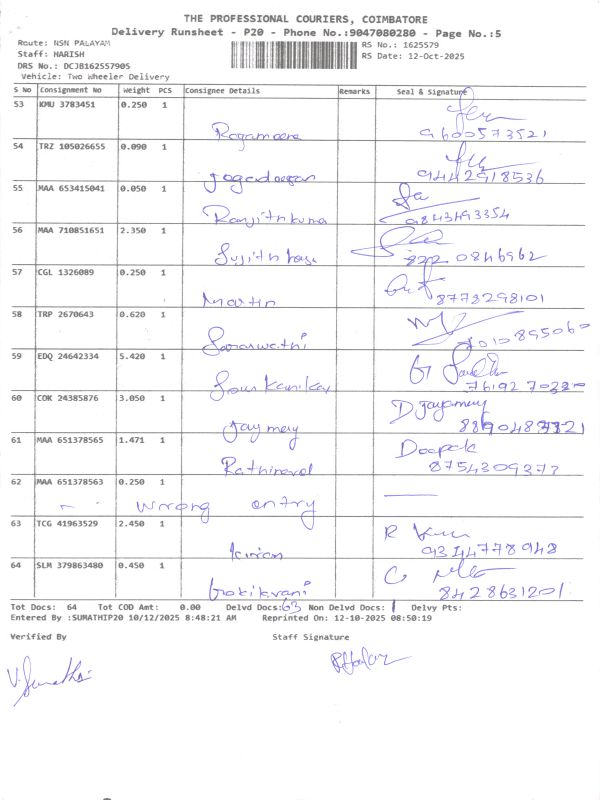 THE PROFESSIONAL COURIERS, COIMBATORE
Delivery Runsheet - P20 - Phone No.:9047080280 - Page No.:5
Route: NSN PALAYAM
RS No.: 1625579
Staff: HARISH
RS Date: 12-Oct-2025
DRS No.: DCJB162557905
Vehicle: Two Wheeler Delivery
S No Consignment No Weight PCS Consignee Details Remarks Seal & Signature
53 KMU 3783451 0.250 1
9600573521
54 TRZ 105026655 0.090 1
9442918536
55 MAA 653415041 0.050 1
Ranjithkuma 9843493354
56 MAA 710851651 2.350 1
0846962
57 CGL 1326089 0.250 1
Martin 8778298101
58 TRP 2670643 0.620 1
Saraswathi
59 EDQ 24642334 5.420 1
60 COK 24385876 3.050 1 D Jayamary
Jaymery
61 MAA 651378565 1.471 1 Deepak
Rathinavel
62 MAA 651378563 0.250 1
Wrong entry
63 TCG 41963529 2.450 1
kiran
64 SLM 379863480 0.450 1
8428631201
Tot Docs: 64 Tot COD Amt: 0.00 Delvd Docs: 63 Non Delvd Docs: 1 Delvy Pts:
Entered By :SUMATHIP20 10/12/2025 8:48:21 AM Reprinted On: 12-10-2025 08:50:19
Verified By Staff Signature
V. Sumathi